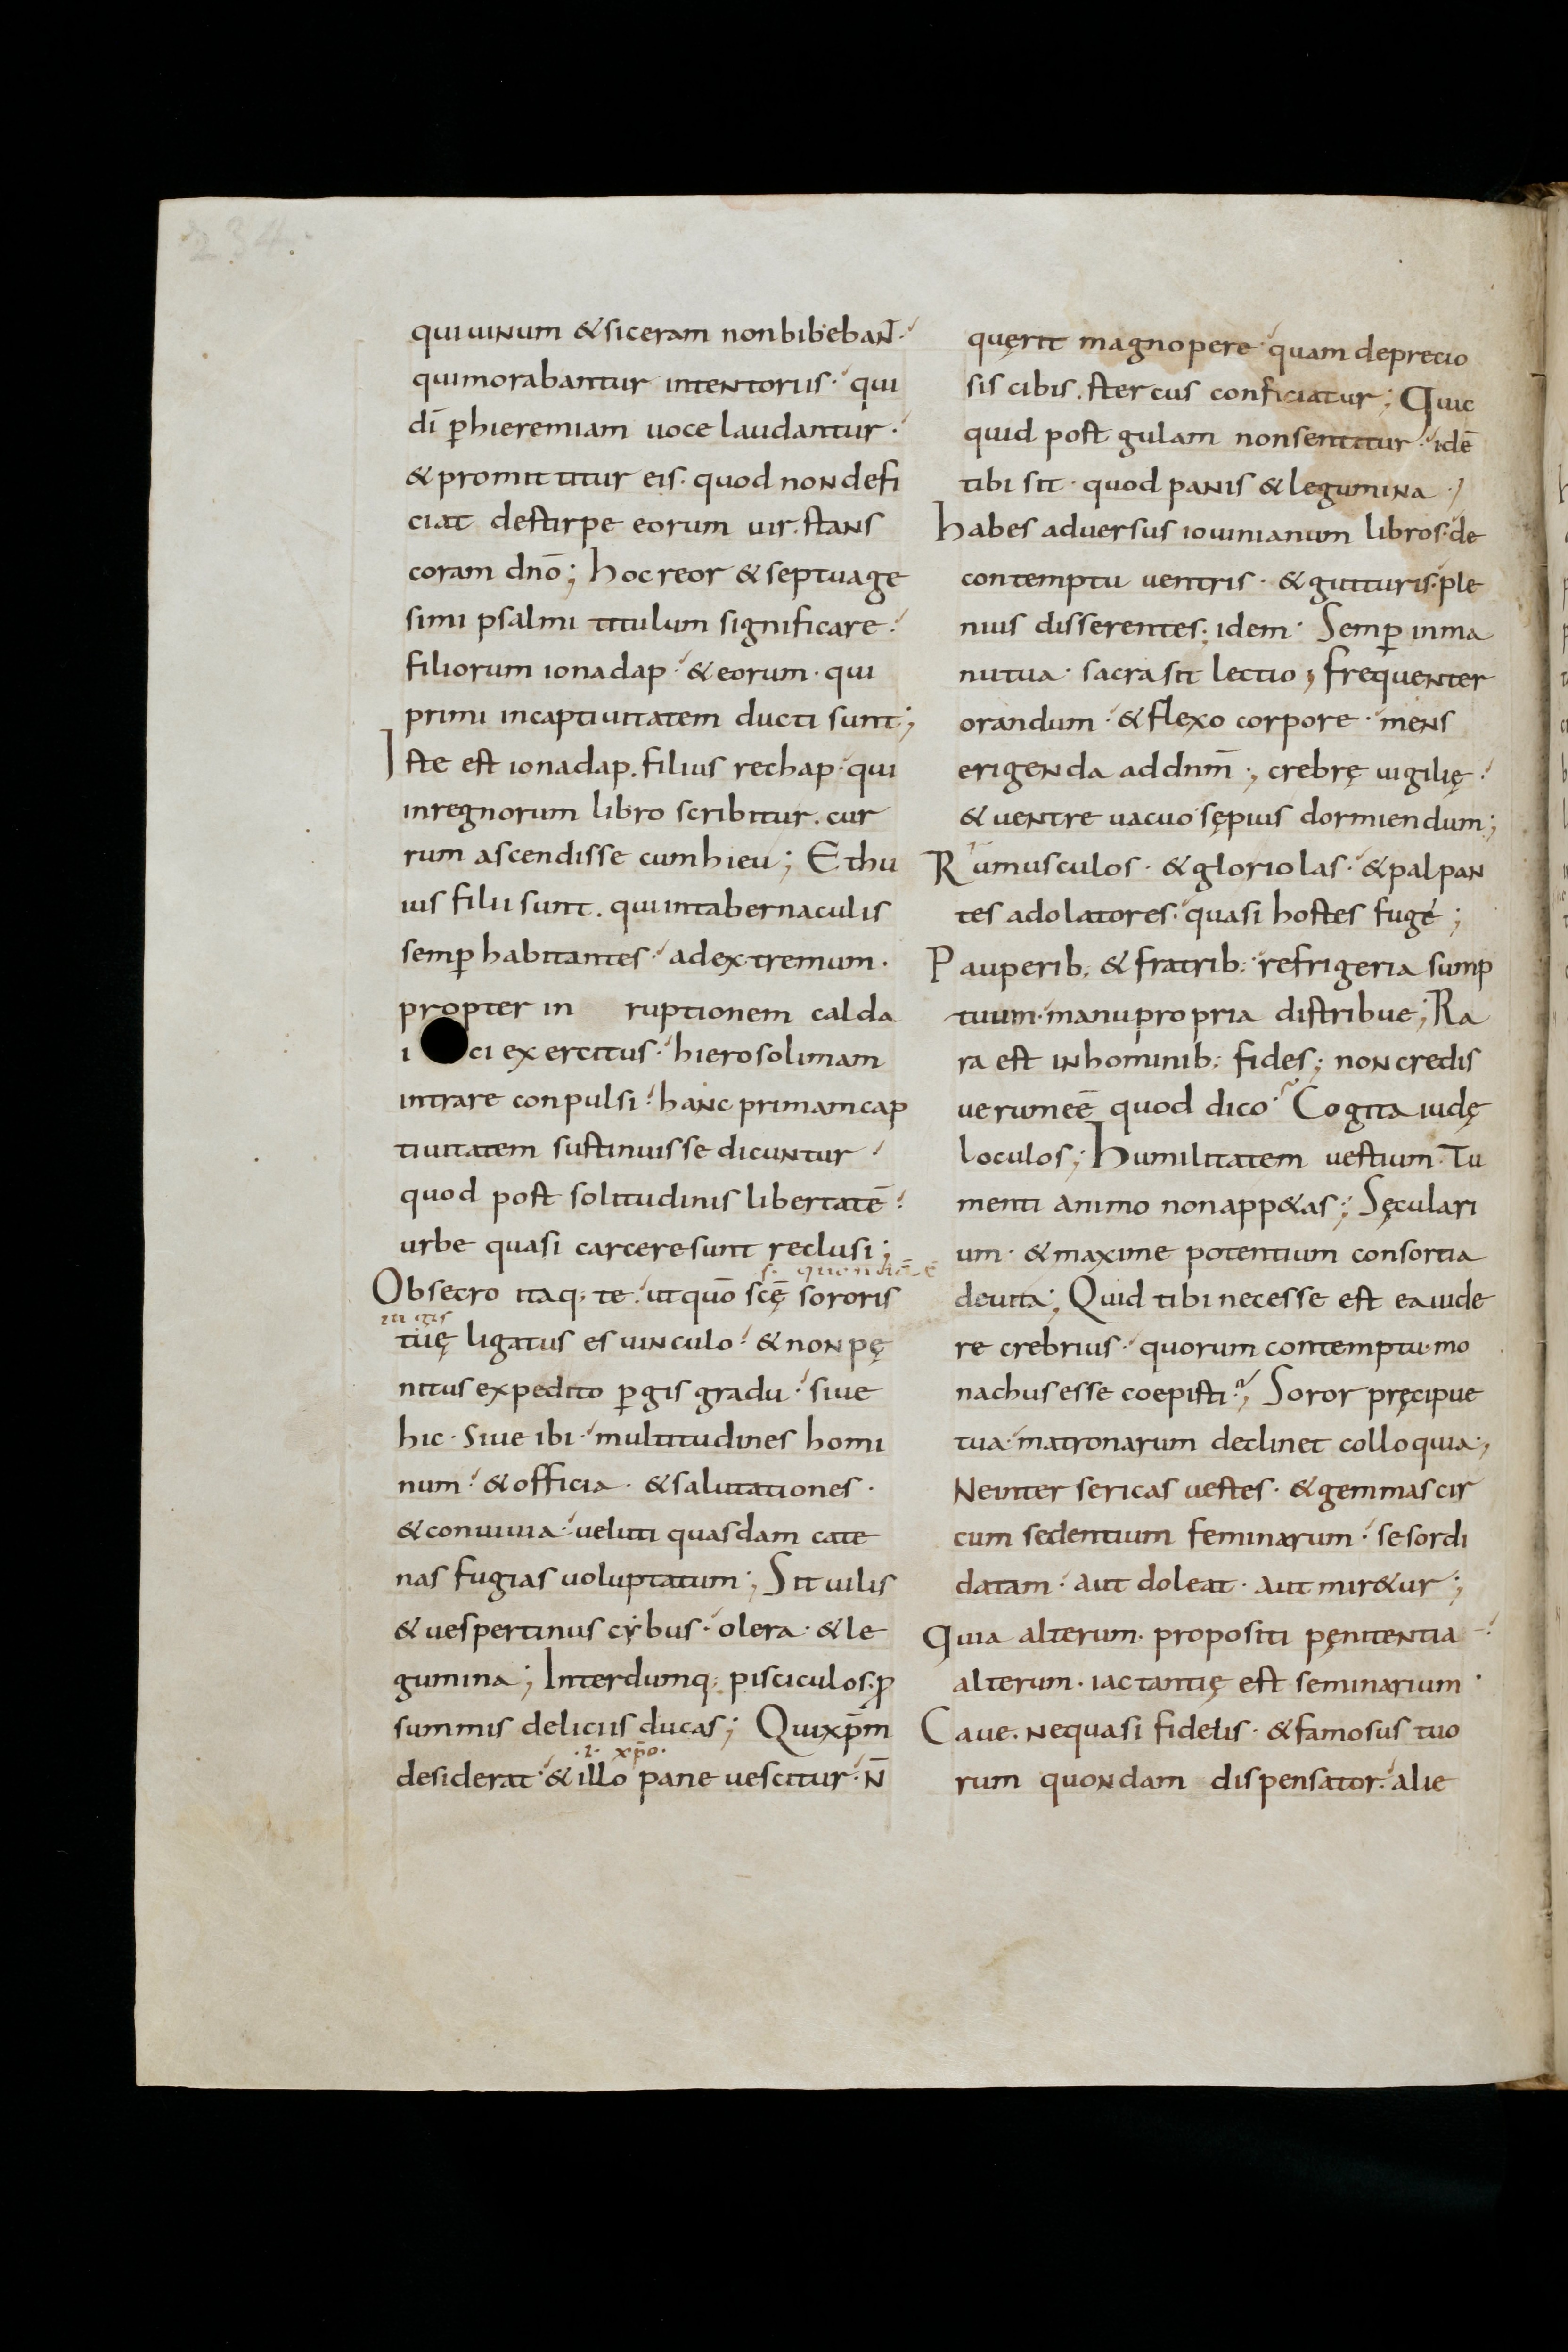 234.
qui uinum & siceram non bibebaNT·
qui morabantur in tentoriis· qui
dī p̄ hieremiam uoce laudantur·
& promittitur eis· quod non defi
ciat de stirpe eorum uir. stans
coram dnō; hoc reor & septuage
simi psalmi titulum significare·
filiorum ionadap· & eorum· qui
primi in captiuitatem ducti sunt;
Iste est ionadap. filius rechap· qui
in regnorum libro scribitur. cur
rum ascendisse cum hieu; Et hu
ius filii sunt. qui in tabernaculis
semp̄ habitantes· ad extremum·
propter in ruptionem calda
i ci exercitus· hierosolimam
intrare conpulsi· hanc primam cap
tiuitatem sustinuisse dicuntur·
quod post solitudinis libertatē·
urbe quasi carcere sunt reclusi;
Obsecro itaq; te· ut quō scę̄ sororis
tuę ligatus es uinculo· & non pę
nitus expedito p̄gis gradu· siue
hic· siue ibi· multitudines homi
num· & officia· & salutationes·
& conuiuia· ueluti quasdam cate
nas fugias uoluptatum; Sit uilis
& uespertinus cẏbus· olera· & le
gumina; Interdumq; pisciculos· p̄
summis deliciis ducas; Qui xp̄m
·i· xp̄o·
desiderat· & illo pane uescitur· N̄
quęrit magnopere· quam de precio
sis cibis. stercus conficiatur; Quic
quid post gulam non sentitur· idē
tibi sit· quod panis & legumina·
habes aduersus iouinianum libros· de
contemptu uentris· & gutturis· ple
nius disserentes; idem· Semp̄ in ma
nu tua· sacra sit lectio; frequenter
orandum· & flexo corpore· mens
erigenda ad dnm̄; crebrę uigilię·
& uentre uacuo sępius dormiendum;
Rumusculos· & gloriolas· & palpan
tes adolatores· quasi hostes fuge;
Pauperib; & fratrib; refrigeria sump
tuum· manu propria distribue; Ra
ra est in hominib; fides; non credis
uerum eē quod dico· Cogita iudę
loculos; humilitatem uestium· Tu
menti animo non app&as; Sęculari
um· & maxime potentium consortia
deuita; Quid tibi necesse est ea uide
re crebrius· quorum contemptu· mo
nachus esse coepisti; Soror pręcipue
tua· matronarum declinet colloquia;
Ne inter sericas uestes· & gemmas cir
cum sedentium feminarum· se sordi
datam· aut doleat· aut mir&ur;
Quia alterum· propositi pęnitentia·
alterum· iactantię est seminarium·
Caue. ne quasi fidelis· & famosus tuo
rum quondam dispensator· alie